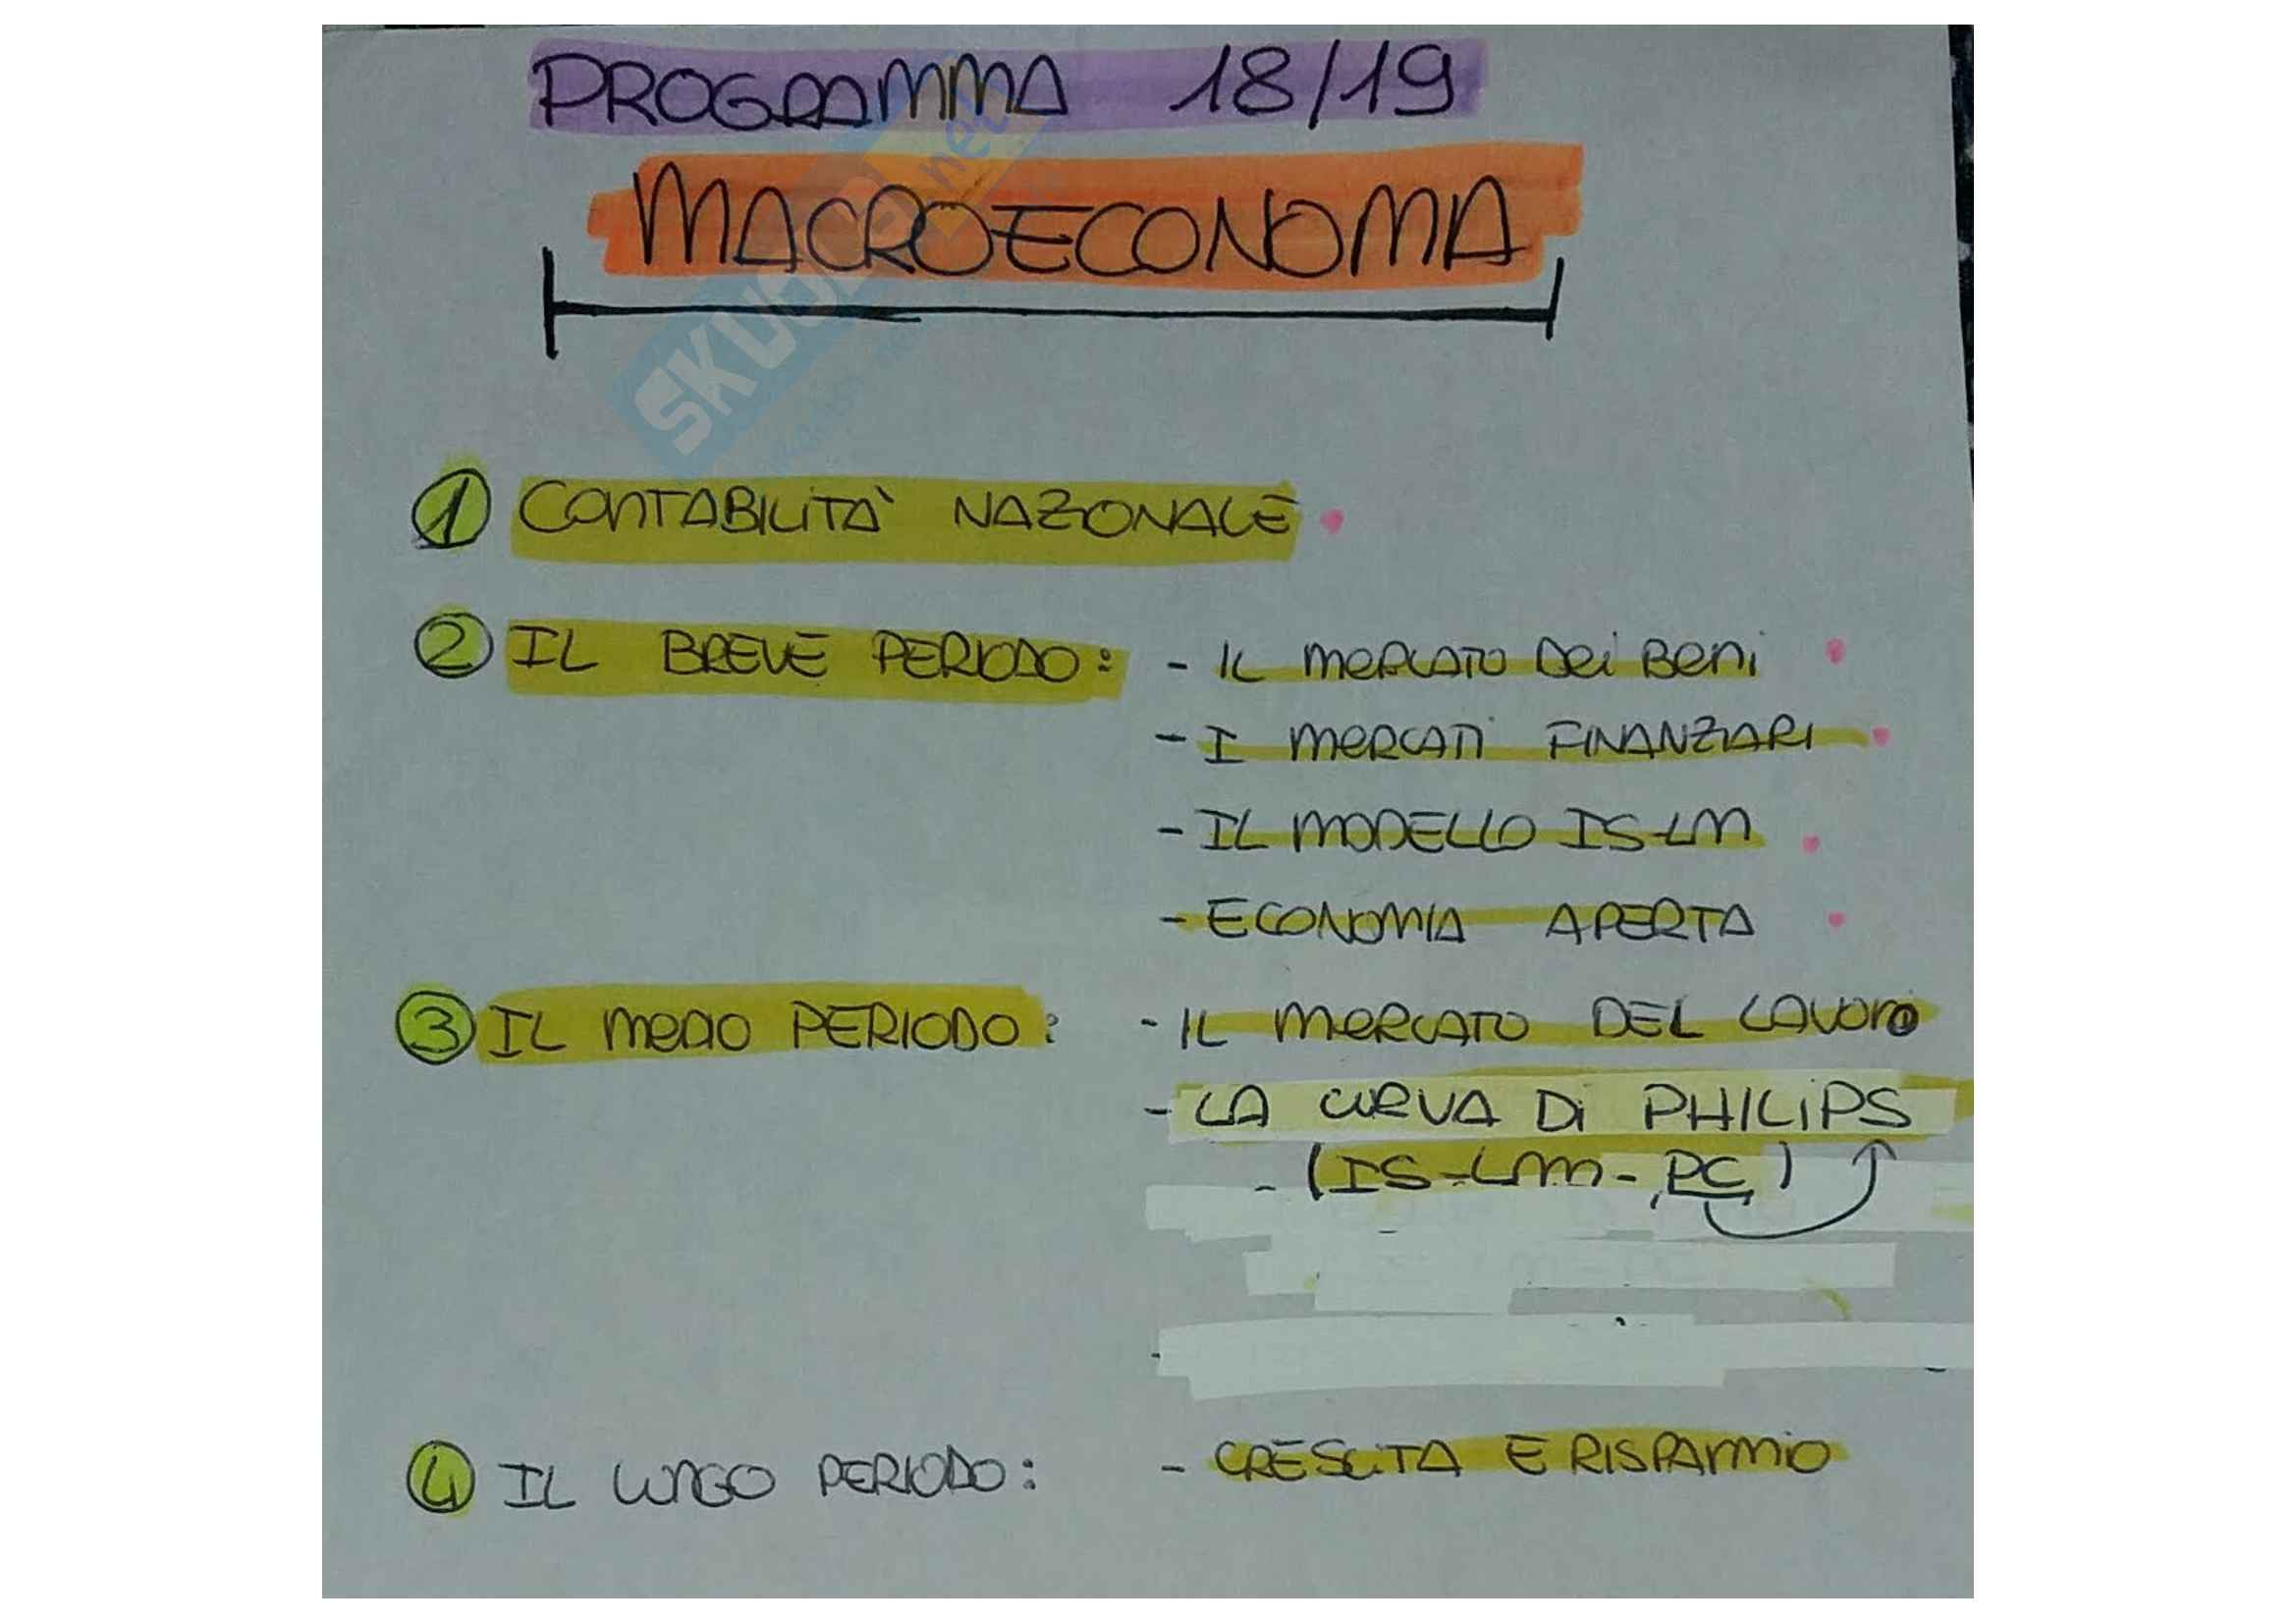 PROGRAMMA 18/19
MACROECONOMA
1 CONTABILITÀ NAZIONALE
2 IL BREVE PERIODO: - IL MERCATO DEI BENI
- I MERCATI FINANZIARI
- IL MODELLO IS-LM
- ECONOMIA APERTA
3 IL MEDIO PERIODO: - IL MERCATO DEL LAVORO
- LA CURVA DI PHILIPS
- (IS-LM-PC)
4 IL LUNGO PERIODO: - CRESCITA E RISPARMIO
SKUOLA.net